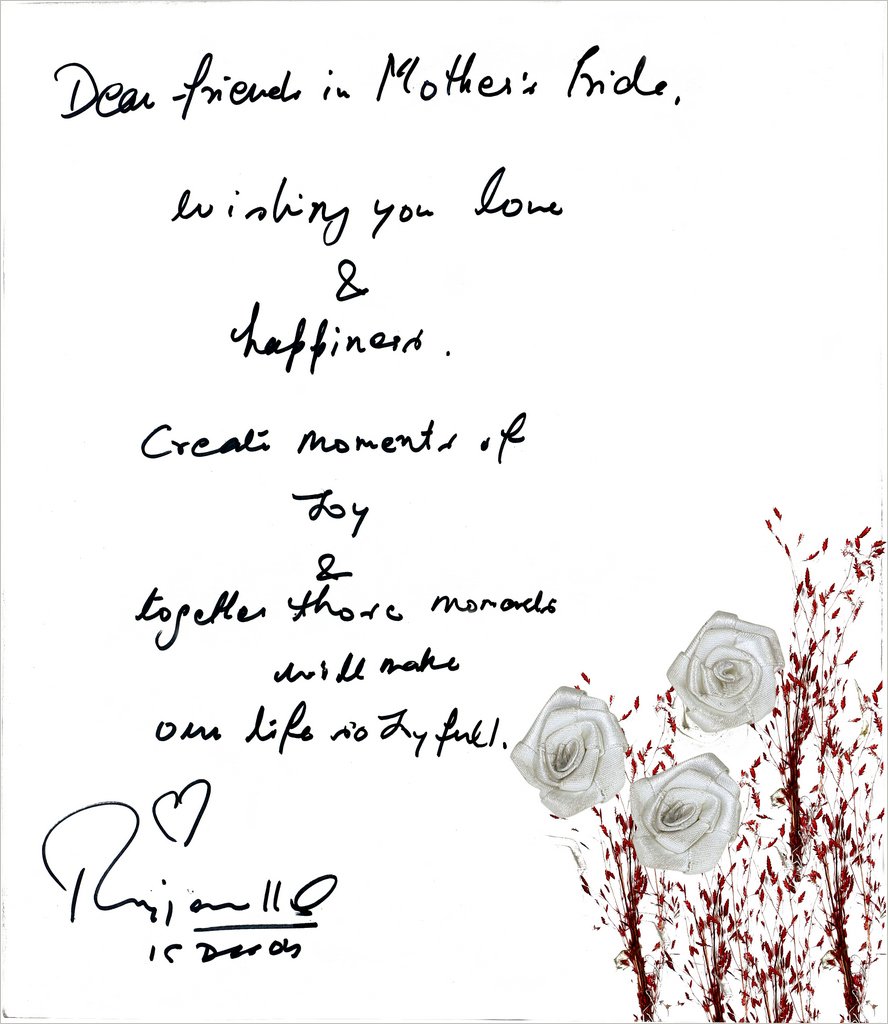 Dear friends in Mother's Pride,
wishing you love
&
happiness.
Create moments of
Joy
&
together those moments
will make
our life so Joyfull.
15 Dec 05